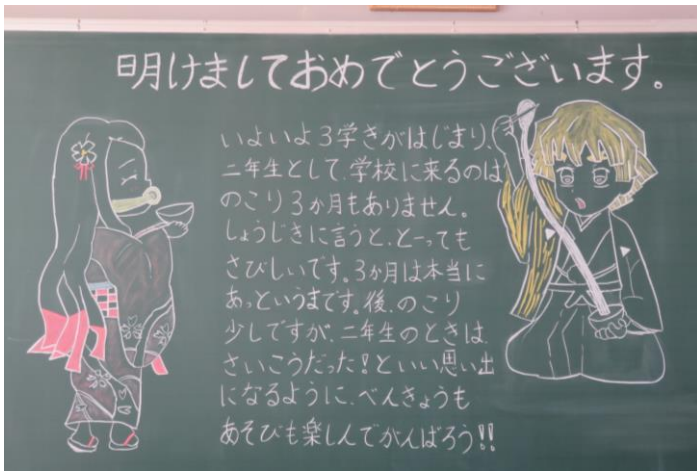 明けましておめでとうございます。
いよいよ3学きがはじまり、
二年生として、学校に来るのは
のこり3か月もありません。
しょうじきに言うと、とっても
さびしいです。3か月は本当に
あっというまです。後、のこり
少しですが、二年生のときは、
さいこうだった!といい思い出
になるように、べんきょうも
あそびも楽しんでがんばろう!!